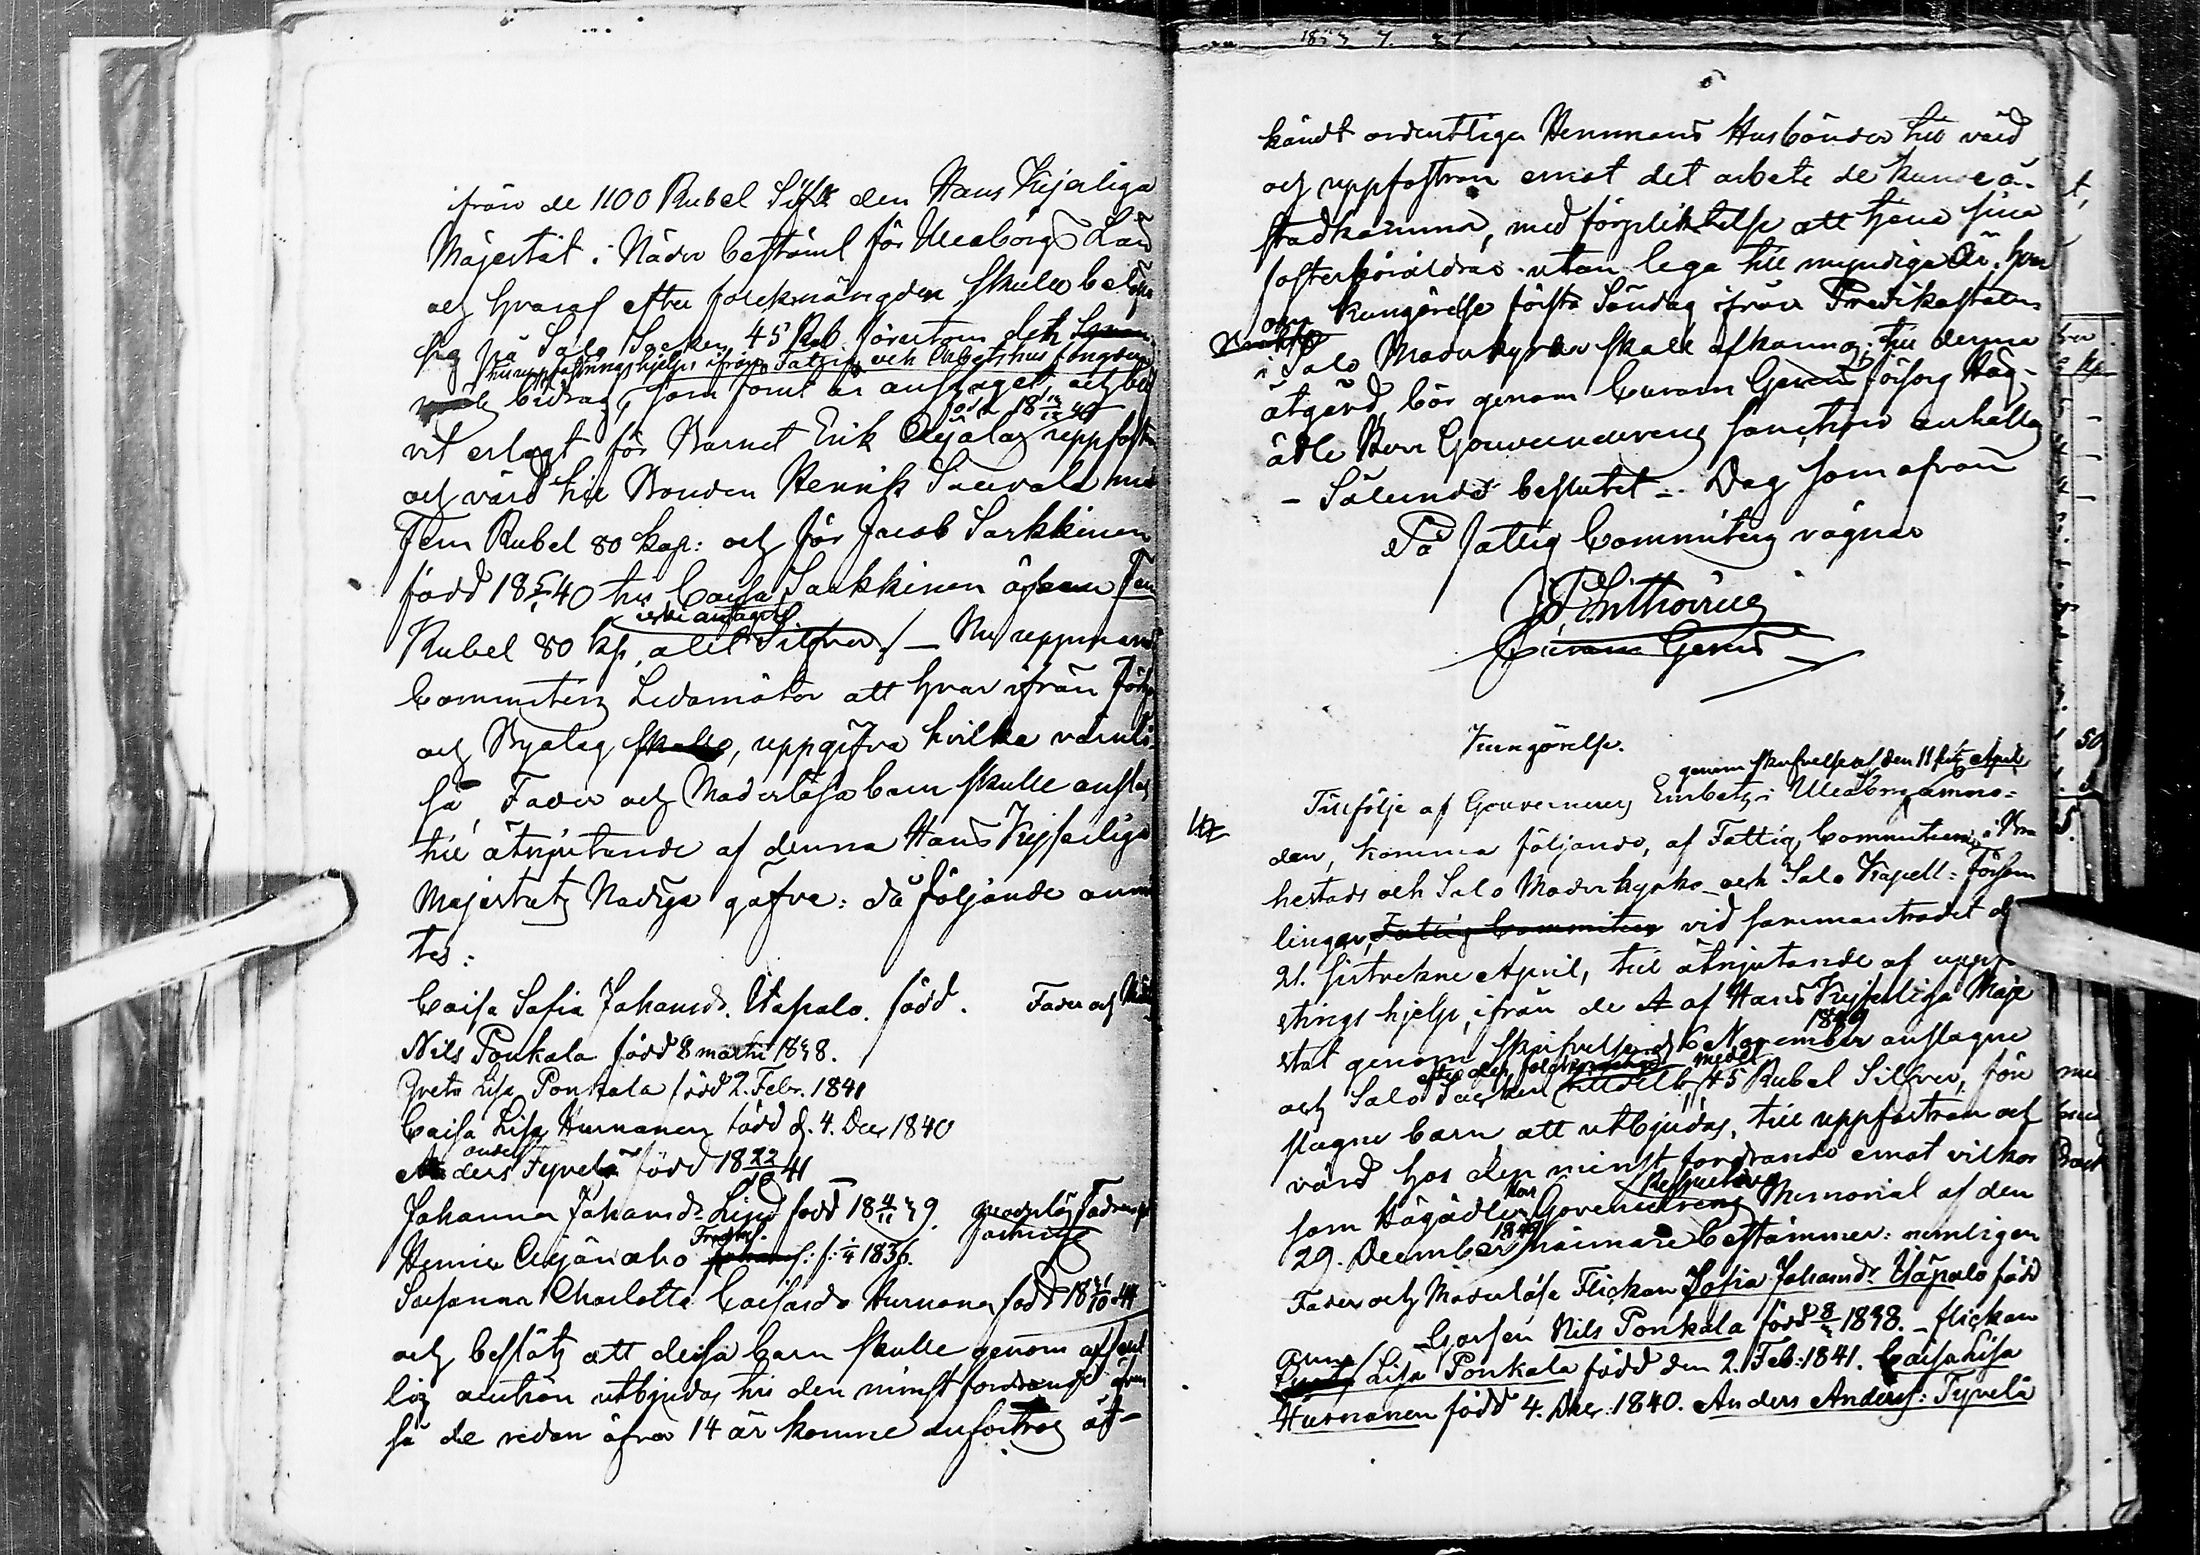 ifrån de 1100 Rubel Silfv den Hans Kejserliga
Majestät i Nåder bestämt för Uleåborgs Län
och hvaraf efter folkmängden skulle belöpa
sig på Salo Socken 45 Rub. förutom det
uppfostrings hjelp ifrån Fattig och Arbetshus fonden
bidrag, som förut är anslaget, och bli
född 18 12/12 40
vit erlagt för Barnet Erik Äijälas uppfostr
och vård till Bonden Henrik Sauvala med
Fem Rubel 80 kop: och för Jacob Sarkkinen
född 18 5/1 40 till Caisa Sarkkinen äfven Fem
Rubel 80 kp, allt Silfver /— Nu uppmanad
Committens Ledamöter att hvar ifrån
och Byalag skulle, uppgifva hvilka värnlö-
sa, Fader och Moderlösa barn skulle anslås
till åtnjutande af denna Hans Kejserliga
Majestäts Nådiga gåfva: då följande anmä
tes:
Caisa Sofia Johansdr. Uapalo. född. Fader och Mod
Nils Ponkala född 8 martii 1838.
Greta Lisa Ponkala född 2. Febr. 1841
Caisa Lisa Hurnanen född d. 4. Dec 1840
anders
Anders Tyvelä född 18 22/10 41
Johanna Johansdr Lind född 18 4/11 39.
Fredrs.
Henric Äijänaho Johans: f: 1/4 1836.
Susanna Charlotta Caisasdr Hurnanen född 18 31/10 44
och beslöts att dessa barn skulle genom offent
lig auction utbjudas till den minst fordrande
så de redan öfver 14 år komne anförtros åt-
kändt ordentliga Hemmans Husbönder till vård
och uppfostran emot det arbete de kunde å-
stadkomma, med förpliktelse att tjena sina
fosterföräldrar utan lega till myndiga År, hvar
om Kungörelse första Söndag ifrån Predikostolen
i Salo Moderkyrka skall afkunnas: till denna
åtgärd bör genom Curam Gerens försorg Hög-
ädle Herr Gouverneurens sanction anhållas
- Sålunda beslutet - Dag som ofvan
På Fattig Committens vägnar
Curam Gerens
Kungörelse.
genom skrifvelse af den 11 sistl. April
Tillfölje af Gouverneurs Embetets i Uleåborg anmo-
dan, komma följande, af Fattig Committeen i Bra
hestads och Salo Moderkyrko- och Salo Kapell: Försam
lingar, Fattig Committeer vid sammanträdet d
21. sistvekne April, till åtnjutande af uppf
strings hjelp, ifrån de af Hans Kejserliga Maje
1849
stät genom skrifvelse d 6 November anslagne
efter dess folkmängd medel
och Salo Socken tilldelt, 45 Rubel Silfver, före
slagne barn att utbjudas, till uppfostran och
vård hos den minst fordrande emot vilkor
som Högädle Herr Gouverneurens Memorial af den
1849
29. December närmare bestämmer: nemligen
Fader och Moderlösa Flickan Sofia Johansdr Uapalo född
Gossen Nils Ponkala född 8/3 1838. - flickan
Anna
Greta Lisa Ponkala född den 2. Feb: 1841. Caisa Lisa
Hurnanen född 4. Dec. 1840. Anders Anders: Tyvelä